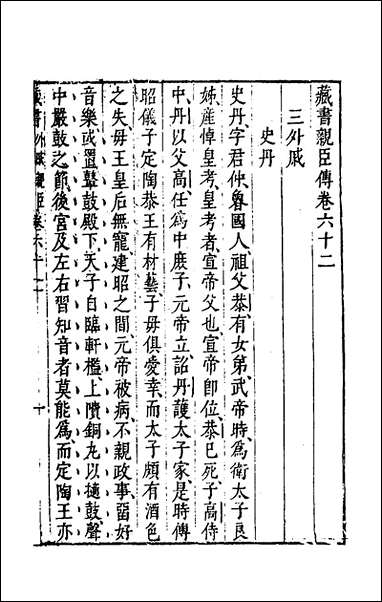 藏書親臣傳卷六十二
三外戚
史丹
史丹字君仲魯國人祖父恭有女弟武帝時為衛太子良
娣產悼皇考皇考者宣帝父也宣帝即位恭已死子高侍
中丹以父高任為中庶子元帝立詔丹護太子家是時傅
昭儀子定陶恭王有材藝子母俱愛幸而太子頗有酒色
之失母王皇后無寵建昭之間元帝被病不親政事畱好
音樂或置鼙鼓殿下天子自臨軒檻上隤銅丸以擿鼓聲
中嚴鼓之節後宮及左右習知音者莫能為而定陶王亦